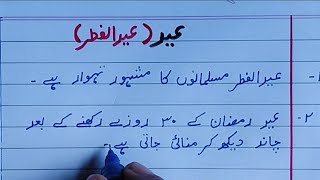 عید (عیدالفطر)
۱- عیدالفطر مسلمانوں کا مشہور تہوار ہے۔
۲- عید رمضان کے ۳۰ روزے رکھنے کے بعد
چاند دیکھ کر منائی جاتی ہے۔